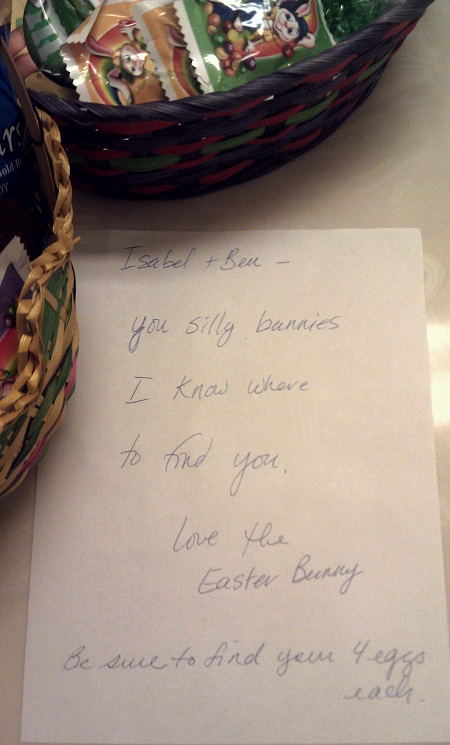 Isabel + Ben -
you silly bunnies
I know where
to find you.
Love the
Easter Bunny
Be sure to find your 4 eggs
each.